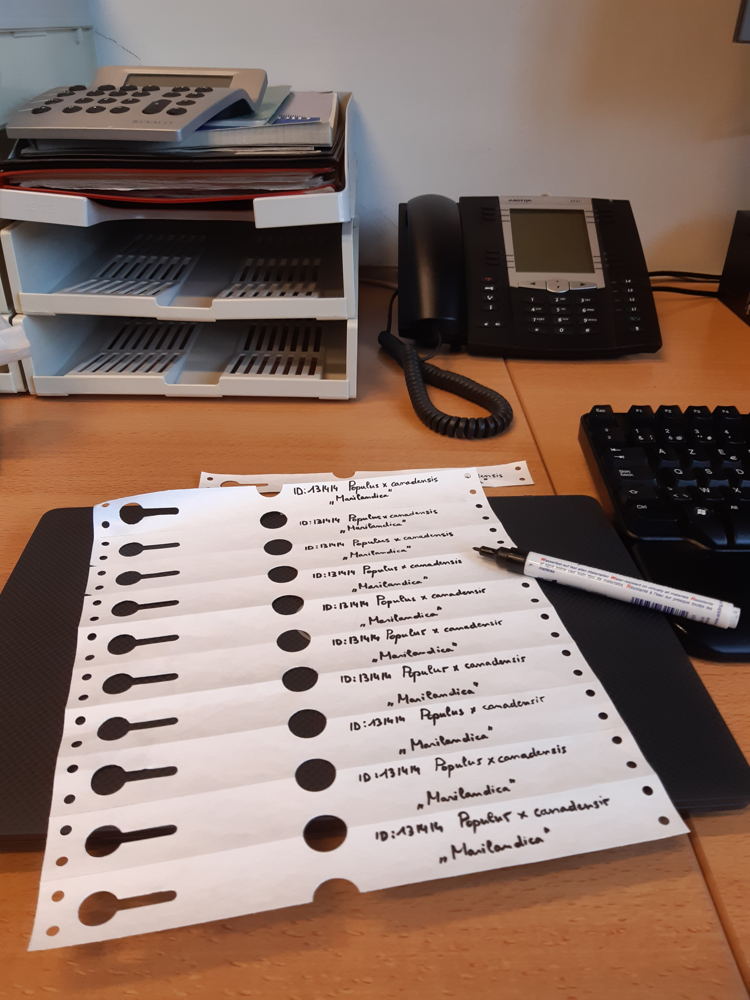 AASTRA
ensis"
ID:131414 Populus x canadensis
„Marilandica"
ID:131414 Populus x canadensis
„Marilandica"
ID:131414 Populus x canadensis
„Marilandica"
ID:131414 Populus x canadensis
„Marilandica"
ID:131414 Populus x canadensis
„Marilandica"
ID:131414 Populus x canadensis
„Marilandica"
ID:131414 Populus x canadensis
„Marilandica"
ID:131414 Populus x canadensis
„Marilandica"
ID:131414 Populus x canadensis
„Marilandica"
ID:131414 Populus x canadensis
„Marilandica"